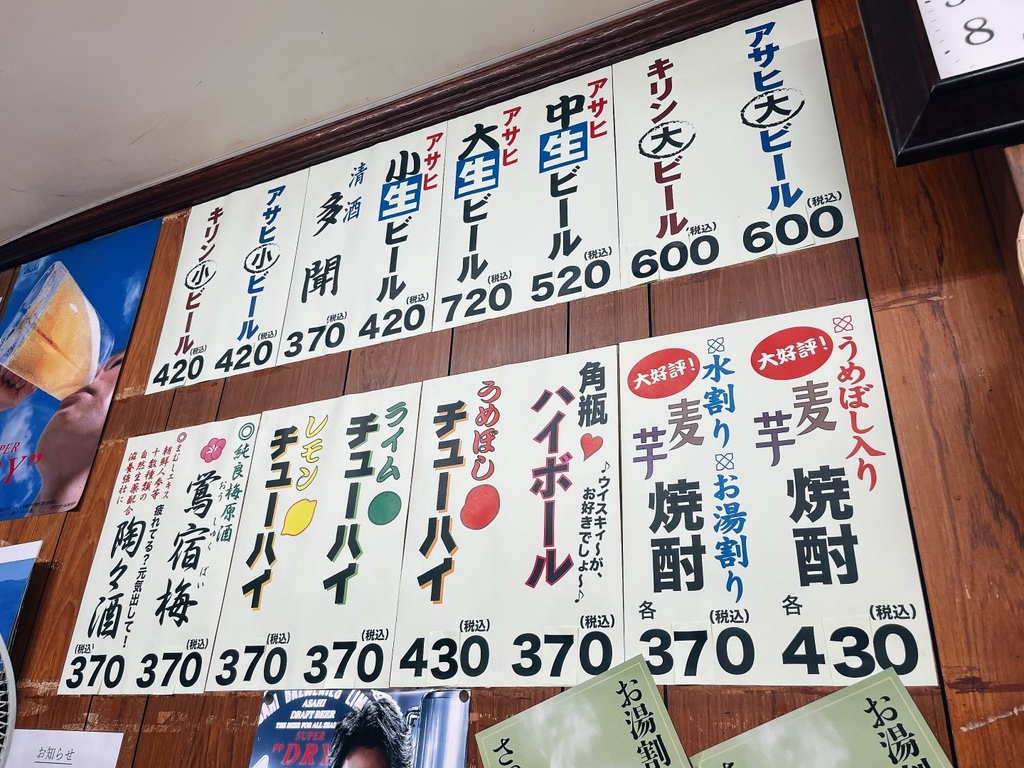 アサヒ大ビール
(税込)
600
キリン大ビール
(税込)
600
アサヒ
中生ビール
(税込)
520
アサヒ
大生ビール
(税込)
720
アサヒ
小生ビール
(税込)
420
清酒
多聞
(税込)
370
アサヒ小ビール
(税込)
420
キリン小ビール
(税込)
420
うめぼし入り
大好評!
麦
芋
焼酎
各
(税込)
430
水割り
お湯割り
大好評!
麦
芋
焼酎
各
(税込)
370
角瓶
♪ウイスキィ〜が、
お好きでしょ〜♪
ハイボール
(税込)
370
うめぼし
チューハイ
(税込)
430
ライム
チューハイ
(税込)
370
レモン
チューハイ
(税込)
370
◎純良梅原酒
鶯宿梅
おうしゅくばい
(税込)
370
○まむしエキス
朝鮮人参等
十数種類の
自然生薬配合
滋養強壮に
疲れてる?元気出して!
陶々酒
(税込)
370
8
お湯割
お湯割
さ
お知らせ
ASAHI
DRAFT BEER
THE BEER FOR ALL SEAS
SUPER
"DRY
PER
Y"